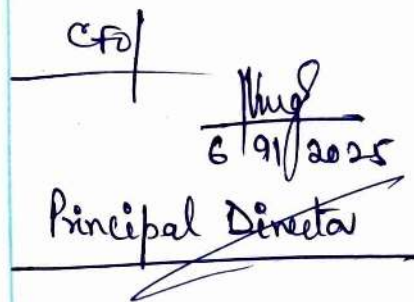 CFO
6/91/2025
Principal Director